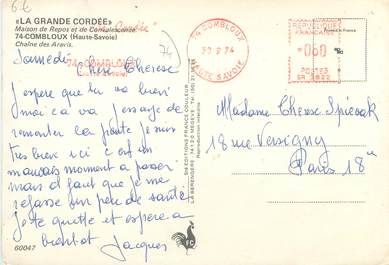 6.€
«LA GRANDE CORDÉE»
Maison de Repos et de Convalescence
74-COMBLOUX (Haute-Savoie)
Chaîne des Aravis.
74 COMBLOUX
HAUTE SAVOIE
30-9 74
REPUBLIQUE
FRANÇAISE
0,60
POSTES
Printed in France
74
Samedi Chère Thérèse
74 COMBLOUX
j'espère que tu va bien
moi ca va j'essaye de
remonter la pente je suis
très bien ici c'est un
mauvais moment a passer
mais il faut que je me
refasse un peu de santé
je te quitte et espère a
bientot Jacques
Madame Thérèse Spiewak
18 rue Versigny
Paris 18e
SM EDITIONS FRANCE COULEUR
LA BERENGERE - 74120 MEGEVE
Reproduction interdite
60047
FC